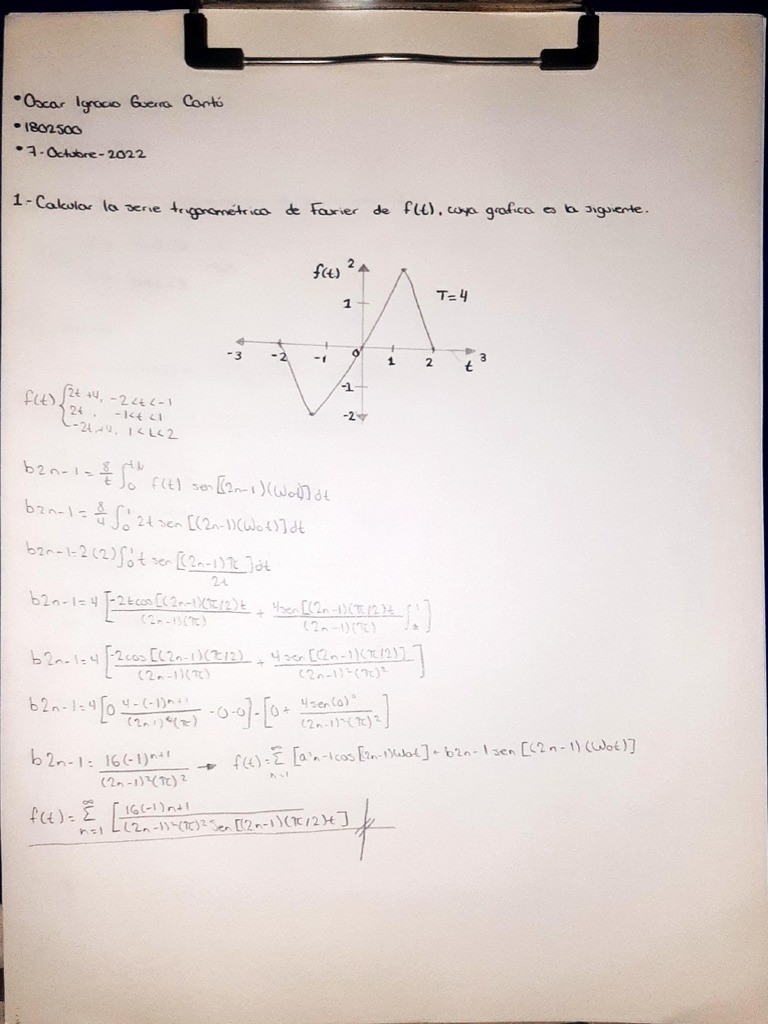 • Oscar Ignacio Guerra Cantú
• 1802500
• 7-Octubre-2022
1-Calcular la serie trigonométrica de Fourier de f(t), cuya grafica es la siguiente.
f(t) 2
1 T=4
-3 -2 -1 0 1 2 t 3
-1
-2
f(t) { 2t+4, -2<t<-1
2t, -1<t<1
-2t+4, 1<t<2
b2n-1 = 8/t ∫0 f(t) sen[(2n-1)(Wot)]dt
b2n-1 = 8/4 ∫0^1 2t sen[(2n-1)(Wot)]dt
b2n-1=2(2)∫0^1 t sen[(2n-1)π/2t]dt
b2n-1=4[-2tcos[(2n-1)(π/2)t/(2n-1)(π) + 4sen[(2n-1)(π/2)t/(2n-1)(π) ∫^1]
b2n-1=4[-2cos[(2n-1)(π/2)/(2n-1)(π) + 4sen[(2n-1)(π/2)]/(2n-1)²(π)²]
b2n-1=4[0 4-(-1)n+1 -0-0]-[0+ 4sen(0)/(2n-1)²(π)²]
b2n-1= 16(-1)^n+1/(2n-1)²(π)² → f(t)=Σ^∞ n=1 [a2n-1cos[2n-1)Wot]+b2n-1sen[(2n-1)(Wot)]
f(t)= Σ^∞ n=1 [16(-1)n+1/(2n-1)²(π)²sen[(2n-1)(π/2)t]